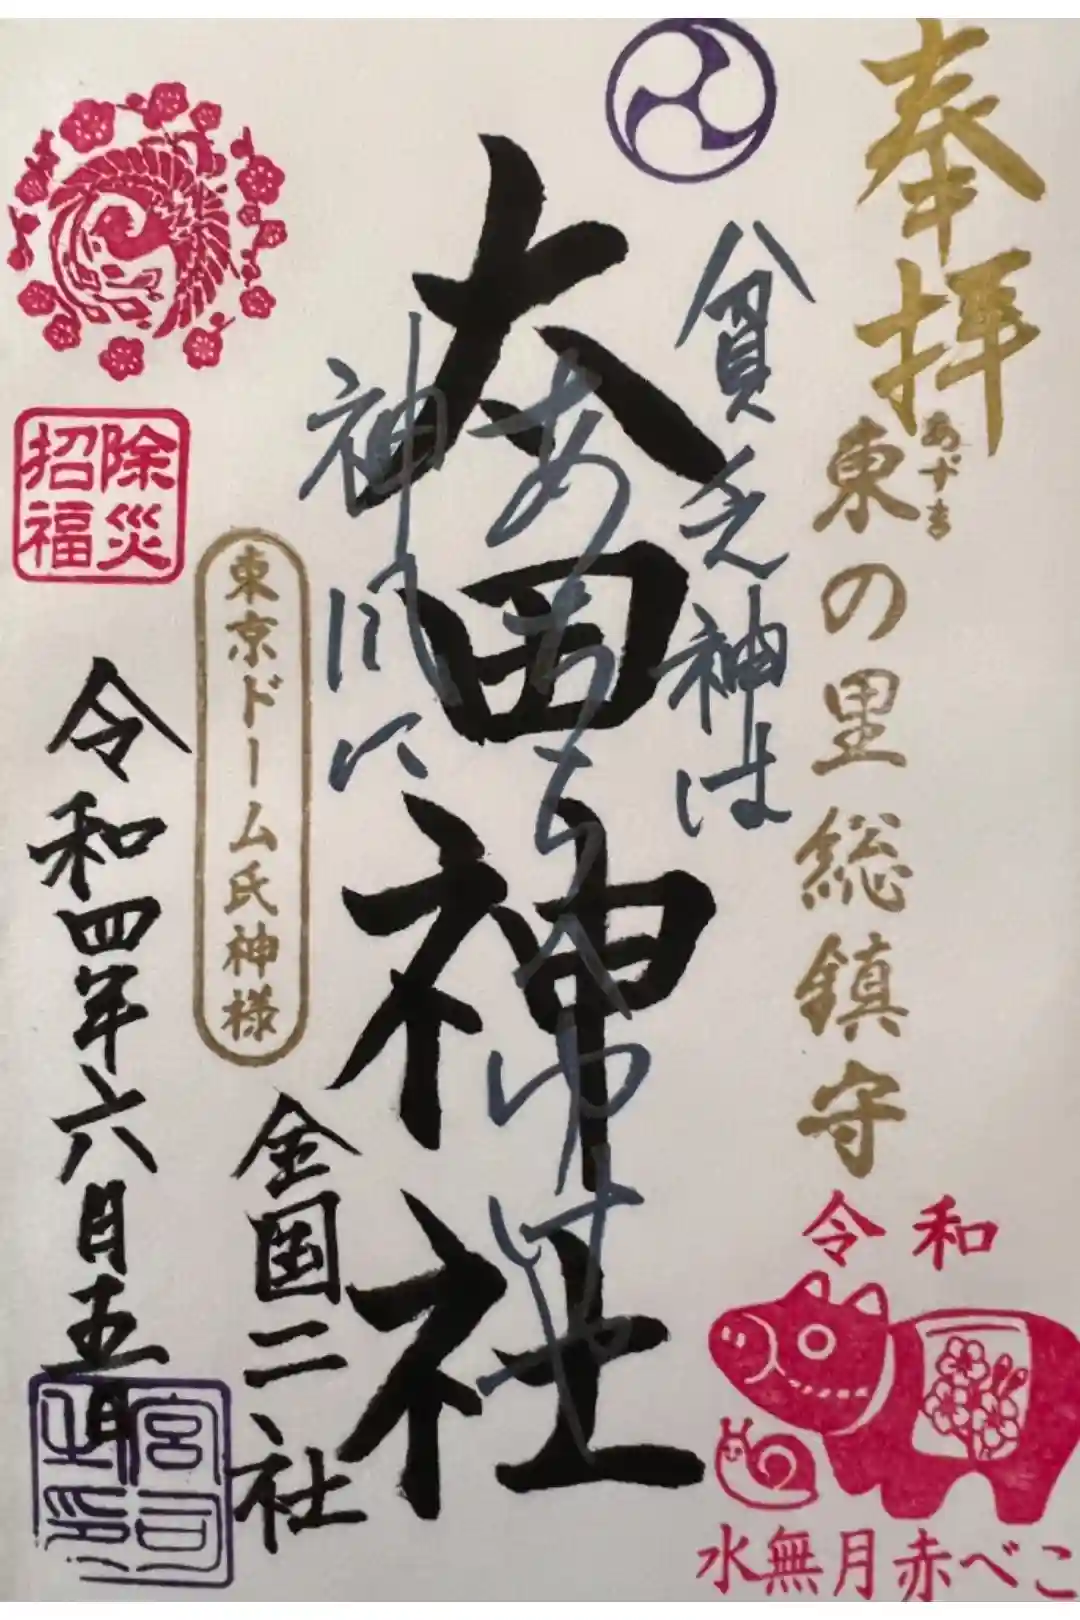 奉拝
あずま
東の里総鎮守
貧乏神は
太田神社
全国二社
東京ドーム氏神様
令和四年六月五日
除災
招福
宮司
之印
令和
水無月赤べこ